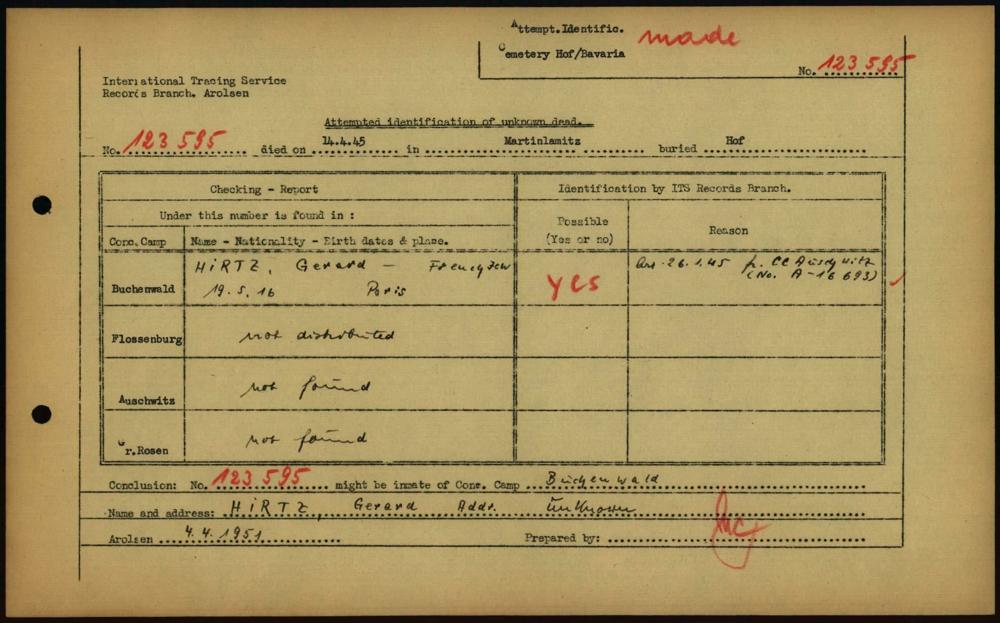 Attempt. Identific. made
Cemetery Hof/Bavaria
No. 123 595
International Tracing Service
Records Branch. Arolsen
Attempted identification of unknown dead.
No. 123 595 died on 14.4.45 in Martinlamitz buried Hof
Checking - Report
Identification by ITS Records Branch.
Under this number is found in :
Possible
(Yes or no)
Reason
Conc. Camp
Name - Nationality - Birth dates & place.
Buchenwald
HiRTZ, Gerard - French Jew
19.5.16 Paris
Yes
Arr. 26.1.45 fr. CC Auschwitz
(No. A-16 693)
Flossenburg
not distributed
Auschwitz
not found
Gr.Rosen
not found
Conclusion: No. 123 595 might be inmate of Conc. Camp Buchenwald
Name and address: HiRTZ, Gerard Addr. unknown
Arolsen 4.4.1951 Prepared by: